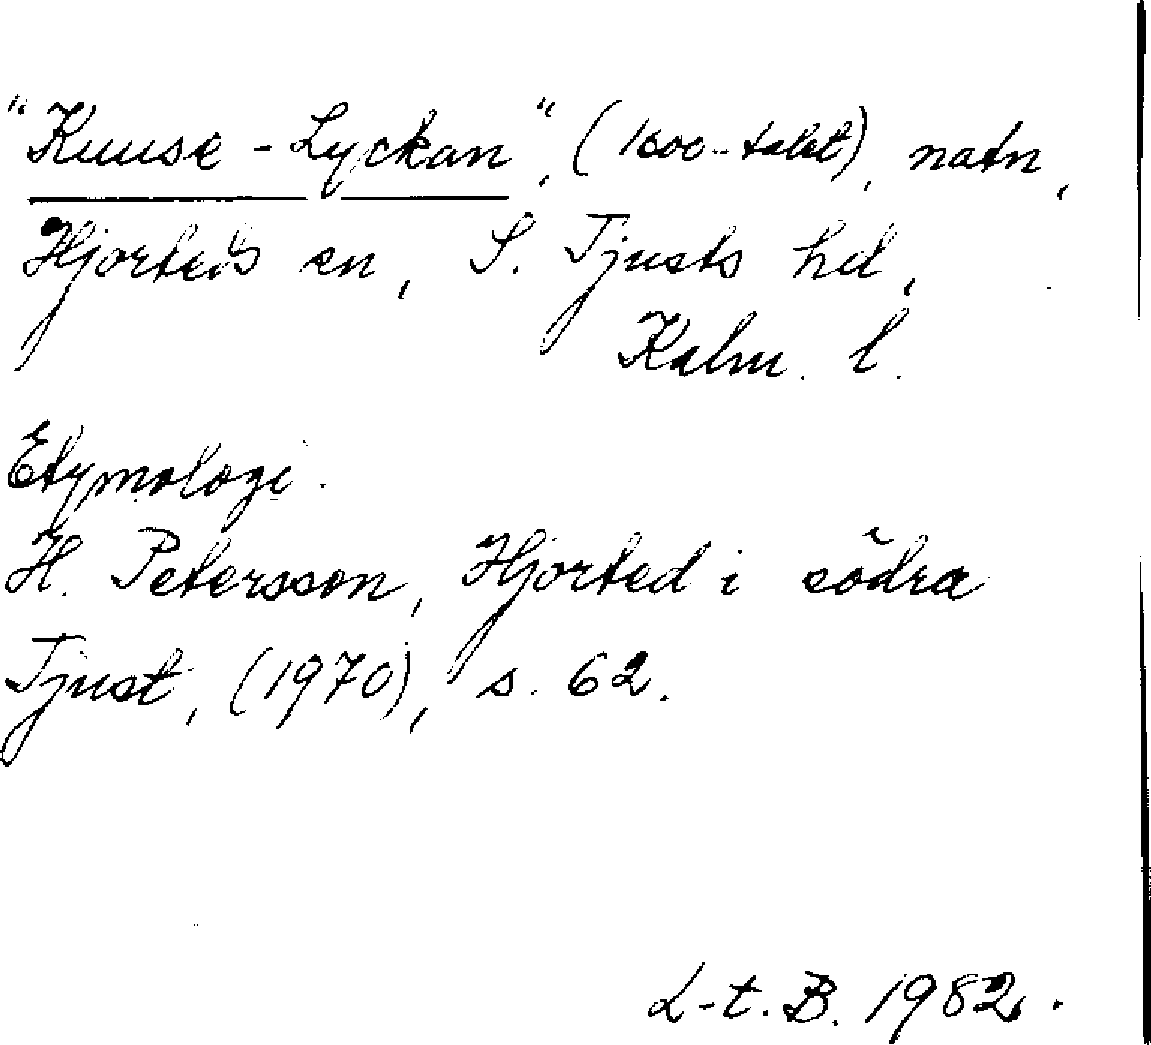 "Kuuse-Lyckan", (1600-talet), natn,
Hjorteds sn, S. Tjusts hd,
Kalm. l.
Etymologi.
H. Petersson, Hjorted i södra
Tjust, (1970), s. 62.
L-t. B. 1982.